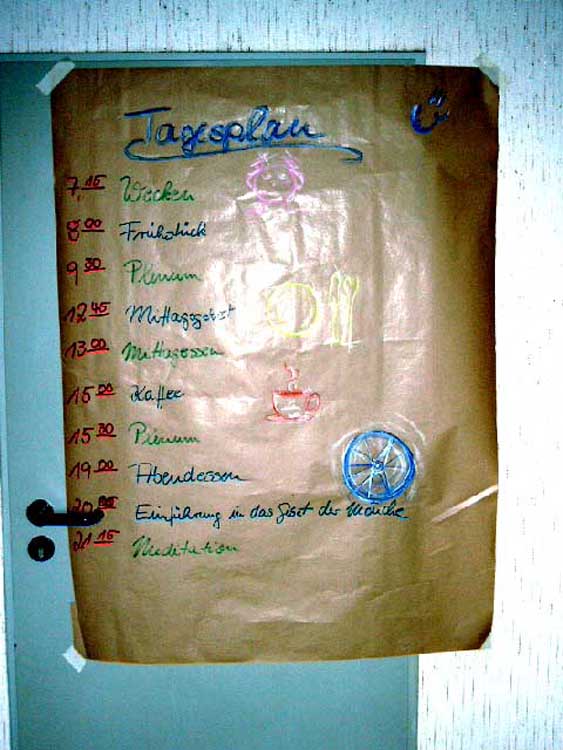 Tagesplan
7.15 Wecken
8 00 Frühstück
9 30 Plenum
12 45 Mittagsgebet
13 00 Mittagessen
15 00 Kaffee
15 30 Plenum
19 00 Abendessen
Einführung in das Gebet der Mönche
21 15 Meditation